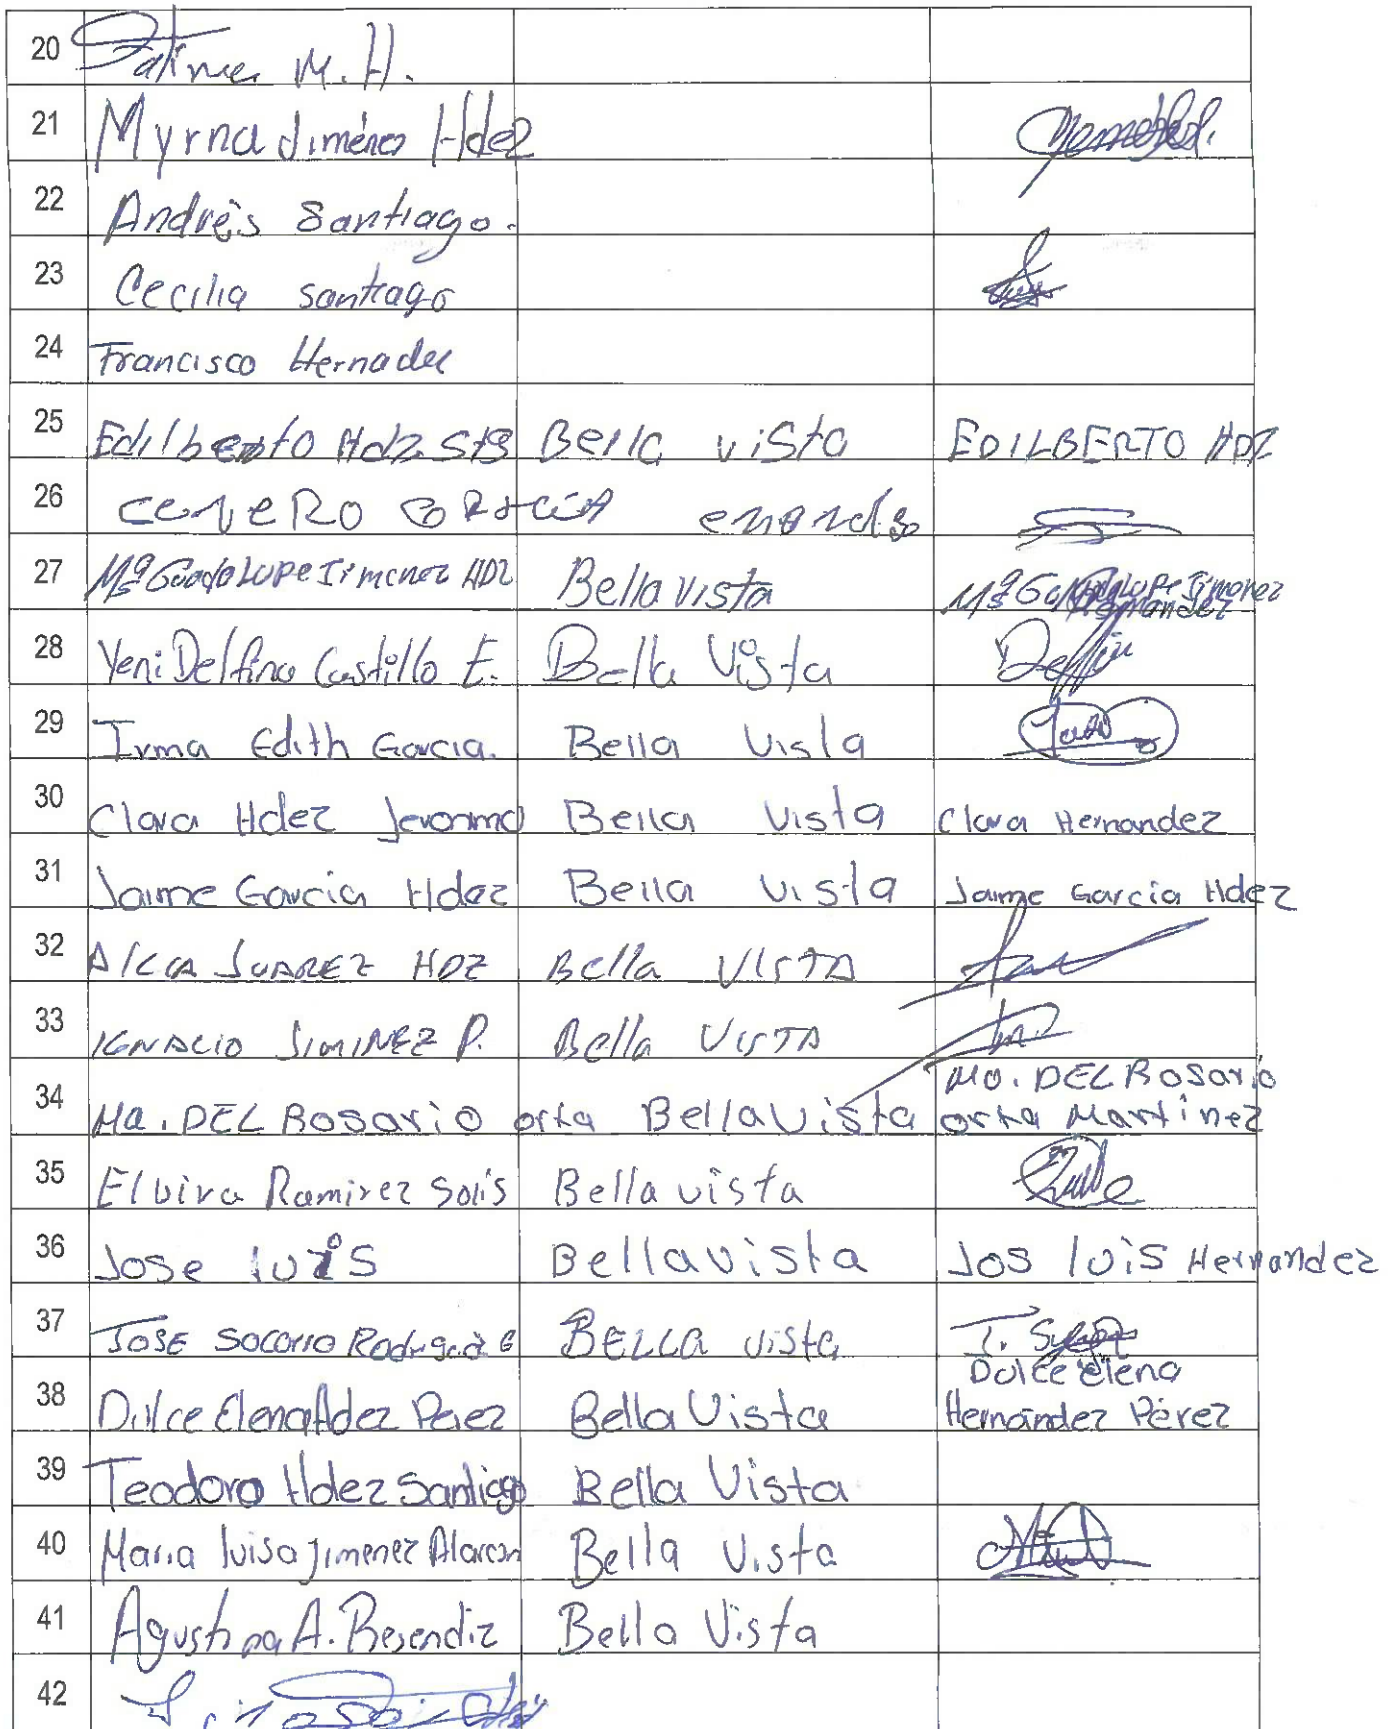 20 Fatima M. H.
21 Myrna Jiménez Hdez
22 Andrés Santiago.
23 Cecilia Santiago
24 Francisco Hernadez
25 Edilberto Hdz. Stg Bella vista EDILBERTO HDZ
26 CENERO
27 Mª Guadalupe Jimenez HDZ Bella Vista Mª Guadalupe Jimenez
Hernandez
28 Yeni Delfina Castillo E. Bella Vista
29 Irma Edith Garcia. Bella Vista
30 Clara Hdez Jeronimo Bella Vista Clara Hernandez
31 Jaime Garcia Hdez Bella Vista Jaime Garcia Hdez
32 JUAREZ HDZ Bella VISTA
33 IGNACIO JIMINEZ P. Bella VISTA
Ma. DEL Rosario
34 Ma. DEL Rosario orta Bella Vista orta Martinez
35 Elvira Ramirez Solis Bella vista
36 Jose luis Bella vista Jos luis Hernandez
37 JOSE SOCORRO BELLA vista
Dulce Elena
38 Dulce Elena Hdez Perez Bella Vista Hernández Pérez
39 Teodoro Hdez Santiago Bella Vista
40 Maria luisa Jimenez Alarcon Bella Vista
41 Agustina A. Resendiz Bella Vista
42